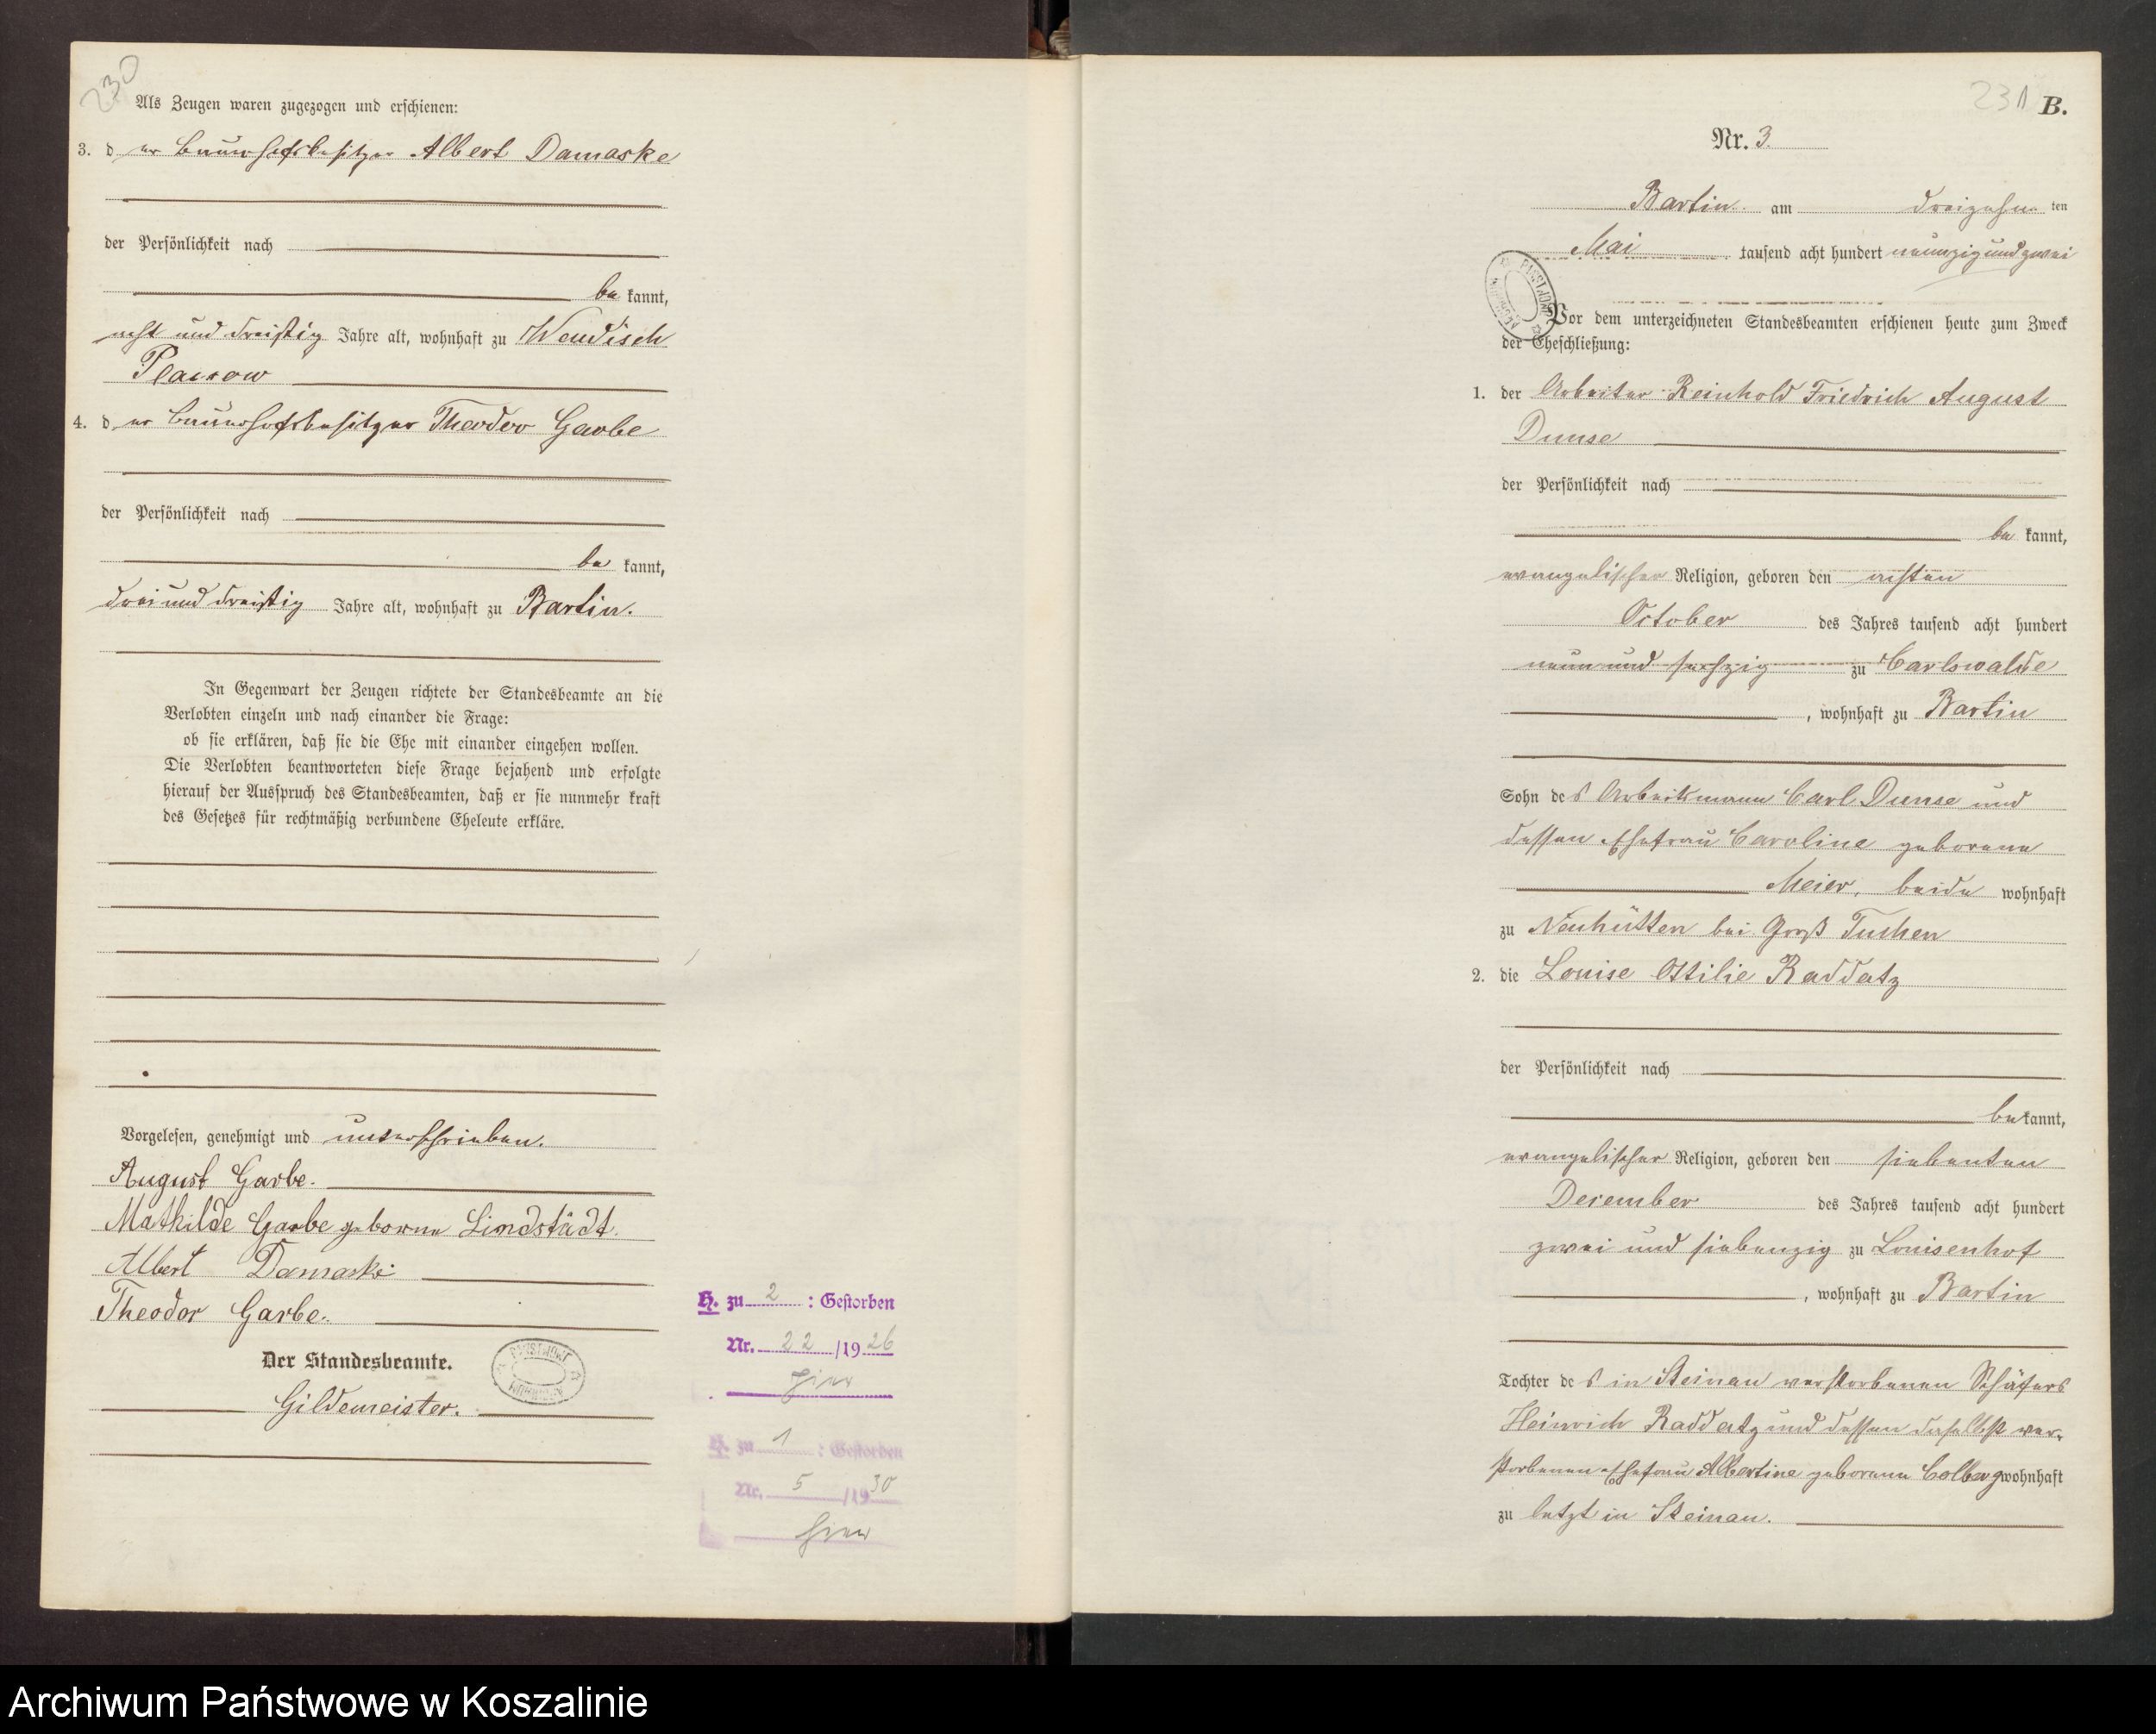 230
Als Zeugen waren zugezogen und erschienen:
3. der Bauerhofsbesitzer Albert Damaske
der Persönlichkeit nach
bekannt,
acht und dreißig Jahre alt, wohnhaft zu Wendisch
Plassow
4. der Bauerhofsbesitzer Theodor Garbe
der Persönlichkeit nach
bekannt,
drei und dreißig Jahre alt, wohnhaft zu Bartin.
In Gegenwart der Zeugen richtete der Standesbeamte an die
Verlobten einzeln und nach einander die Frage:
ob sie erklären, daß sie die Ehe mit einander eingehen wollen.
Die Verlobten beantworteten diese Frage bejahend und erfolgte
hierauf der Ausspruch des Standesbeamten, daß er sie nunmehr kraft
des Gesetzes für rechtmäßig verbundene Eheleute erkläre.
Vorgelesen, genehmigt und unterschrieben.
August Garbe.
Mathilde Garbe geborne Lindstädt.
Albert Damaske
Theodor Garbe.
Der Standesbeamte.
Gildemeister.
H. zu 2 : Gestorben
Nr. 22 /1926
H. zu 1 : Gestorben
Nr. 5 /1930
231 B.
Nr. 3.
Bartin am dreizehn ten
Mai tausend acht hundert neunzig und zwei
Vor dem unterzeichneten Standesbeamten erschienen heute zum Zweck
der Eheschließung:
1. der Arbeiter Reinhold Friedrich August
Dunse
der Persönlichkeit nach
bekannt,
evangelischer Religion, geboren den achten
October des Jahres tausend acht hundert
neun und sechzig zu Carlswalde
, wohnhaft zu Bartin
Sohn des Arbeitsmann Carl Dunse und
dessen Ehefrau Caroline geborene
Meier, beide wohnhaft
zu Neuhütten bei Groß Tuchen
2. die Louise Ottilie Raddatz
der Persönlichkeit nach
bekannt,
evangelischer Religion, geboren den siebenten
December des Jahres tausend acht hundert
zwei und siebenzig zu Louisenhof
, wohnhaft zu Bartin
Tochter des in Steinau verstorbenen Schäfers
Heinrich Raddatz und dessen daselbst ver-
storbenen Ehefrau Albertine geborene Colberg wohnhaft
zu letzt in Steinau.
Archiwum Państwowe w Koszalinie